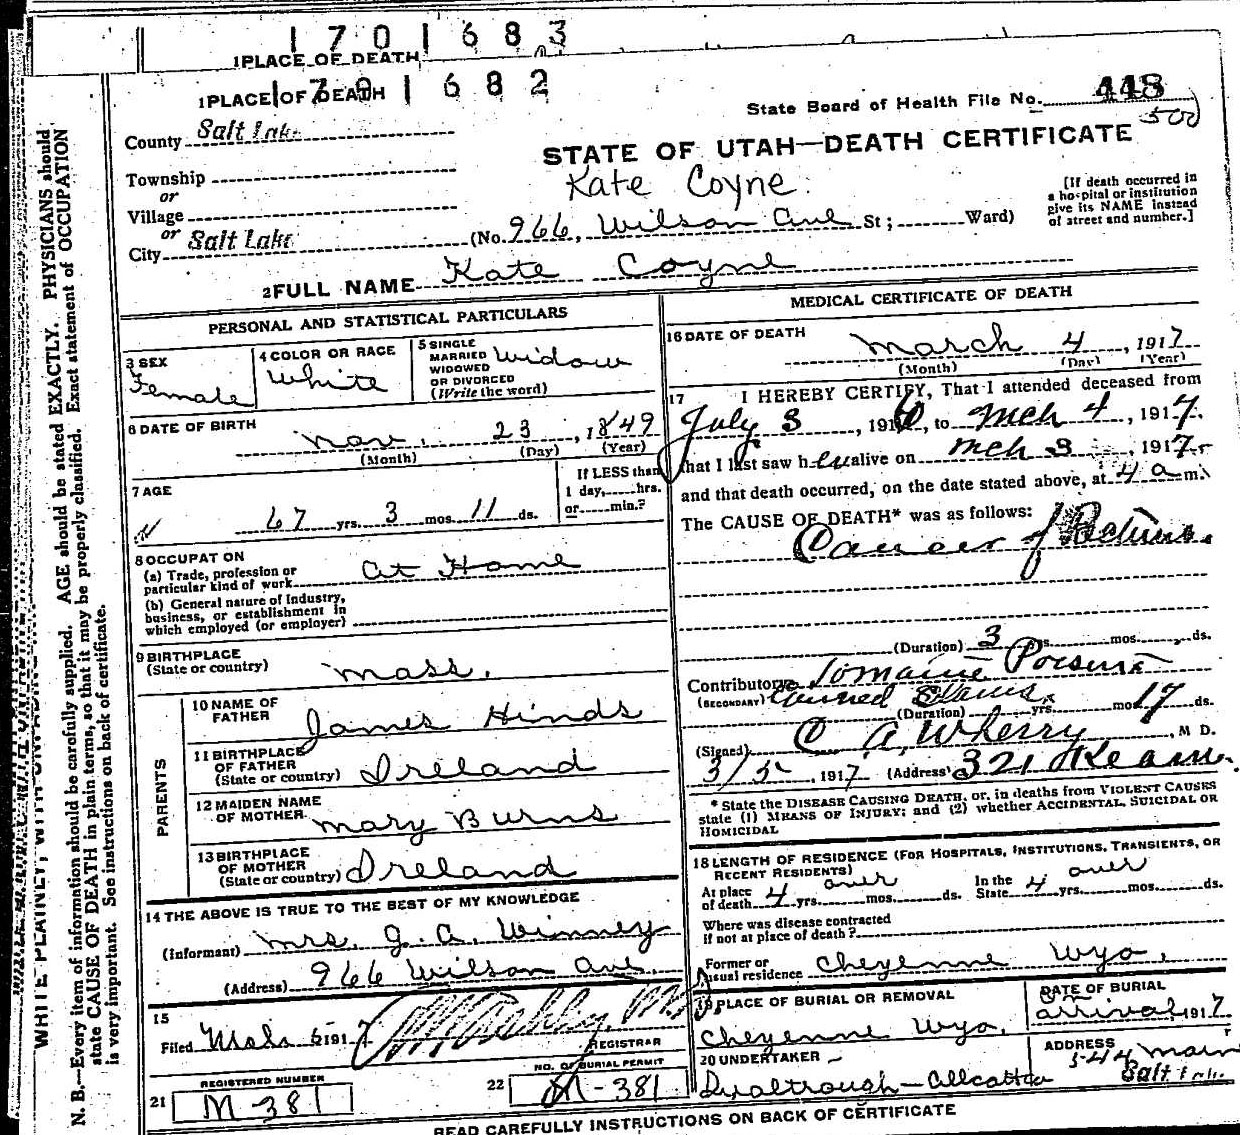 1701683
1 PLACE OF DEATH
1701682
1 PLACE OF DEATH
State Board of Health File No. 448
500
County Salt Lake
STATE OF UTAH—DEATH CERTIFICATE
Township
or
Village
or
City Salt Lake
Kate Coyne
(No. 966, Wilson Ave St; Ward)
[If death occurred in
a hospital or institution
give its NAME instead
of street and number.]
2 FULL NAME Kate Coyne
PERSONAL AND STATISTICAL PARTICULARS
3 SEX
Female
4 COLOR OR RACE
White
5 SINGLE
MARRIED
WIDOWED
OR DIVORCED
(Write the word)
Widow
6 DATE OF BIRTH
Nov. 23, 1849
(Month) (Day) (Year)
7 AGE
67 yrs. 3 mos. 11 ds.
If LESS than
1 day, hrs.
or min.?
8 OCCUPATION
(a) Trade, profession or
particular kind of work At Home
(b) General nature of Industry,
business, or establishment in
which employed (or employer)
9 BIRTHPLACE
(State or country) Mass.
PARENTS
10 NAME OF
FATHER James Hinds
11 BIRTHPLACE
OF FATHER
(State or country) Ireland
12 MAIDEN NAME
OF MOTHER Mary Burns
13 BIRTHPLACE
OF MOTHER
(State or country) Ireland
14 THE ABOVE IS TRUE TO THE BEST OF MY KNOWLEDGE
(Informant) Mrs. J. A. Winney
(Address) 966 Wilson Ave.
15
Filed Mch 5 1917
REGISTRAR
REGISTERED NUMBER
21 M-381
NO. OF BURIAL PERMIT
22 M-381
MEDICAL CERTIFICATE OF DEATH
16 DATE OF DEATH
March 4, 1917
(Month) (Day) (Year)
17 I HEREBY CERTIFY, That I attended deceased from
July 3, 1916, to Mch 4, 1917.
that I last saw her alive on Mch 3, 1917
and that death occurred, on the date stated above, at 4 a m.
The CAUSE OF DEATH* was as follows:
Cancer of Rectum.
(Duration) 3 yrs. mos. ds.
Contributory Tomaine Poisoning
(SECONDARY) Canned
(Duration) yrs. mos 17 ds.
(Signed) C A. Wherry, M D.
3/5, 1917 (Address) 321 Kearn
* State the DISEASE CAUSING DEATH, or, in deaths from VIOLENT CAUSES
state (1) MEANS OF INJURY; and (2) whether ACCIDENTAL, SUICIDAL OR
HOMICIDAL
18 LENGTH OF RESIDENCE (FOR HOSPITALS, INSTITUTIONS, TRANSIENTS, OR
RECENT RESIDENTS)
At place
of death 4 over yrs. mos. ds.
In the
State 4 over yrs. mos. ds.
Where was disease contracted
if not at place of death?
Former or
usual residence Cheyenne Wyo.
19 PLACE OF BURIAL OR REMOVAL
Cheyenne Wyo.
DATE OF BURIAL
On arrival 1917
20 UNDERTAKER
ADDRESS
544 Main
Salt Lake
READ CAREFULLY INSTRUCTIONS ON BACK OF CERTIFICATE
N. B.—Every item of information should be carefully supplied. AGE should be stated EXACTLY. PHYSICIANS should
state CAUSE OF DEATH in plain terms, so that it may be properly classified. Exact statement of OCCUPATION
is very important. See instructions on back of certificate.